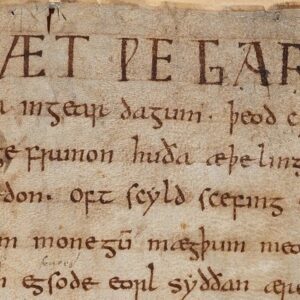 ÆT ǷE GAR
na ingear dagum. þeod c
ge frunon huða æþeling
edon. oft scyld scefing
m monegū mægþum meo
n egsode eorl syððan ær